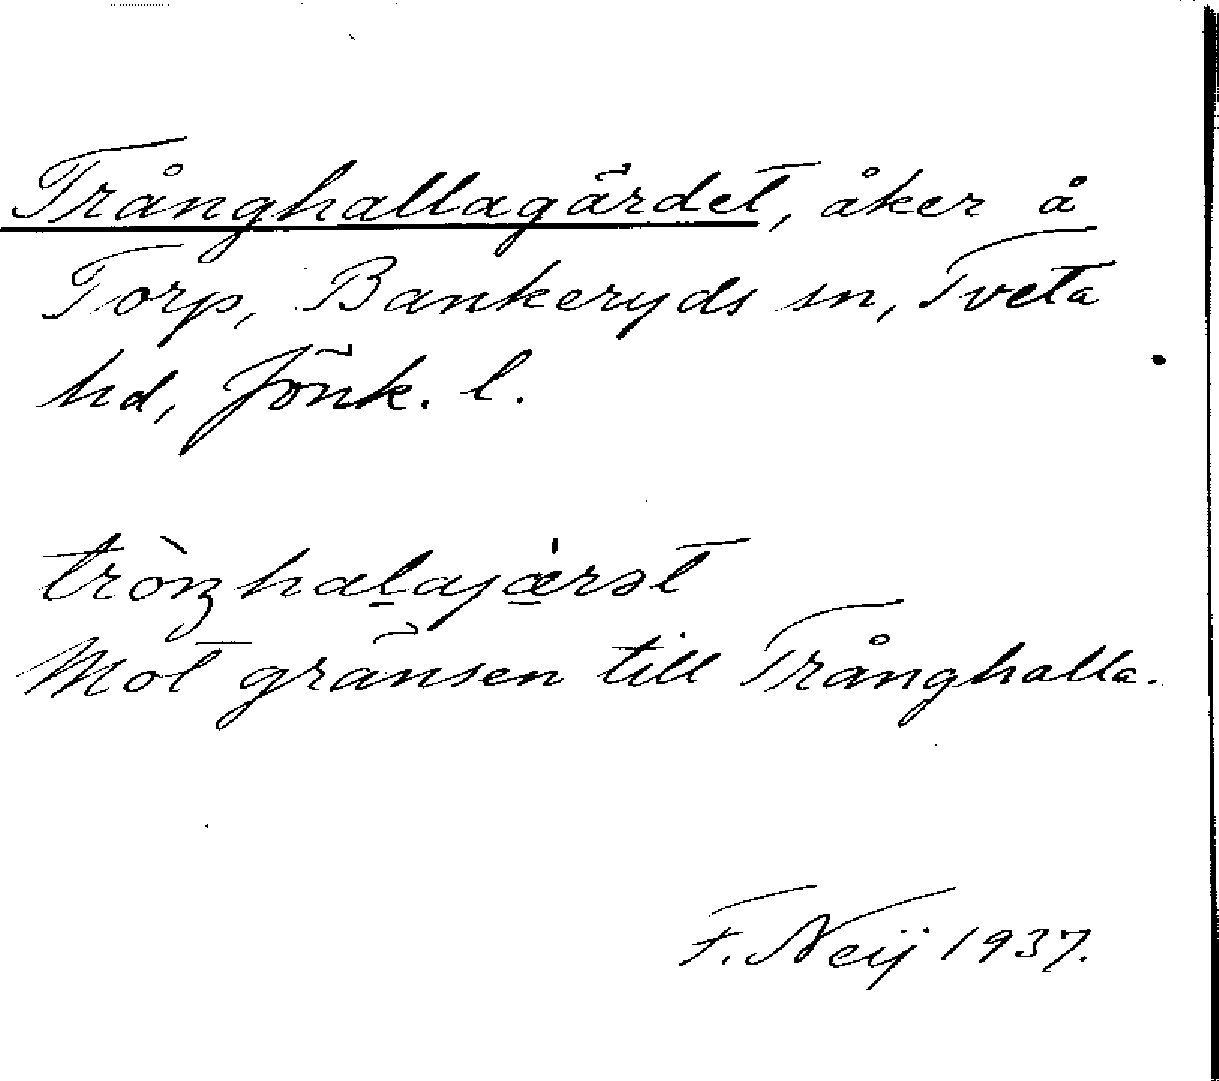 Trånghallagärdet, åker å
Torp, Bankeryds sn, Tveta
hd, Jönk. l.
tròŋhal̲ajæ̲̍rət
Mot gränsen till Trånghalla.
F. Neij 1937.